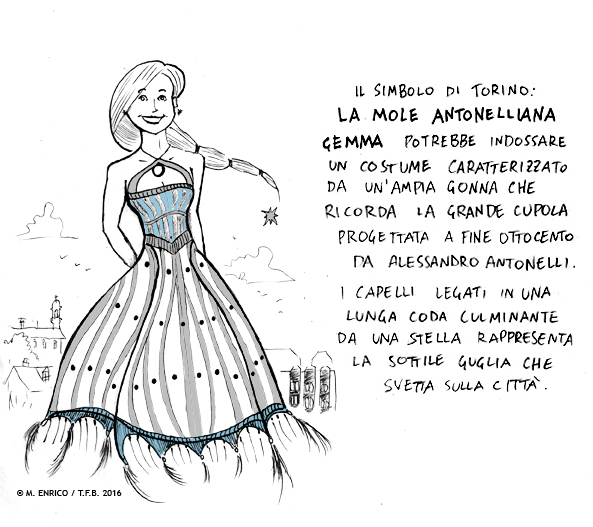 IL SIMBOLO DI TORINO:
LA MOLE ANTONELLIANA
GEMMA POTREBBE INDOSSARE
UN COSTUME CARATTERIZZATO
DA UN'AMPIA GONNA CHE
RICORDA LA GRANDE CUPOLA
PROGETTATA A FINE OTTOCENTO
DA ALESSANDRO ANTONELLI.
I CAPELLI LEGATI IN UNA
LUNGA CODA CULMINANTE
DA UNA STELLA RAPPRESENTA
LA SOTTILE GUGLIA CHE
SVETTA SULLA CITTÀ.
© M. ENRICO / T.F.B. 2016